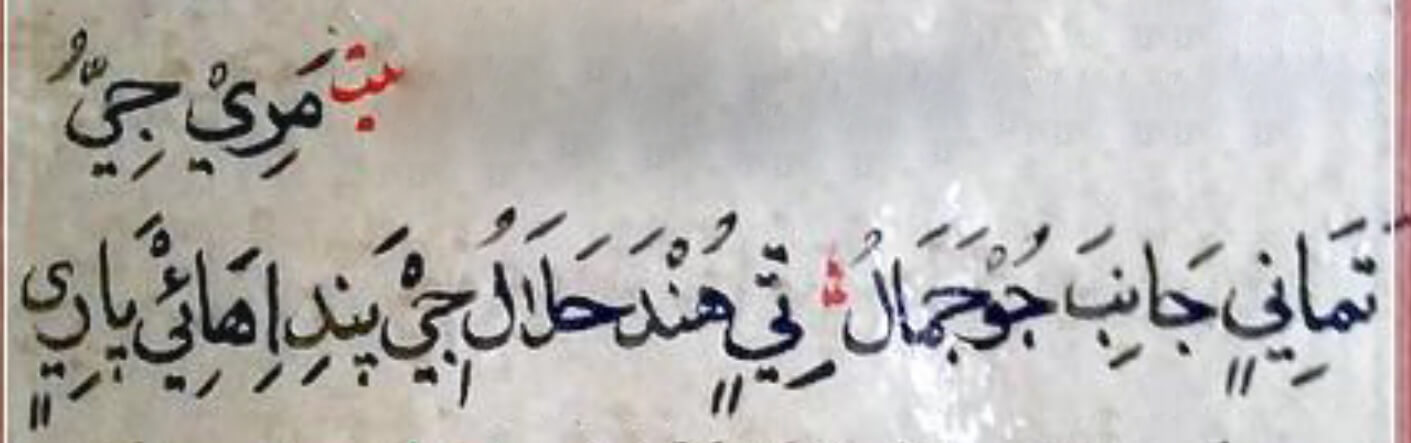 بيت مَرِيْ جِيُّ
تَمَانِيٍ جَانِبَ جُوْ جَمَالُ تِيٍّ هُنْدَ حَلَالُ جِيْ پَندِ اِهَائِيْ يَارِيٍ